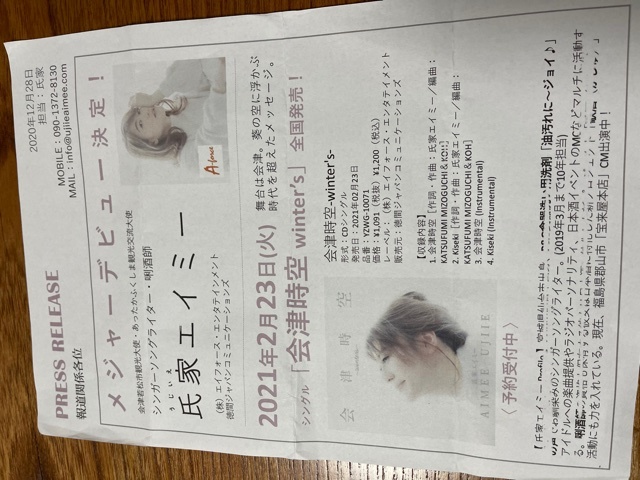 PRESS RELEASE
2020年12月28日
担当：氏家
報道関係各位
MOBILE：090-1372-8130
MAIL：info@ujieaimee.com
メジャーデビュー決定！
会津若松市観光大使・あったかふくしま観光交流大使
シンガーソングライター・唎酒師
うじいえ
氏家エイミー
(株) エイフォース・エンタテイメント
徳間ジャパンコミュニケーションズ
A-force
舞台は会津。葵の空に浮かぶ
時代を超えたメッセージ。
2021年2月23日(火)
シングル「会津時空 winter's」全国発売！
会津時空
AIMEE UJIIE
〈予約受付中〉
会津時空-winter's-
形式：CDシングル
発売日：2021年02月23日
品番：YZWG-10071
価格：¥1,091（税抜）¥1,200（税込）
レーベル：（株）エイフォース・エンタテイメント
販売元：徳間ジャパンコミュニケーションズ
【収録内容】
1. 会津時空［作詞・作曲：氏家エイミー／編曲：
KATSUFUMI MIZOGUCHI & KOH］
2. Kiseki［作詞・作曲：氏家エイミー／編曲：
KATSUFUMI MIZOGUCHI & KOH］
3. 会津時空 (Instrumental)
4. Kiseki (Instrumental)
【氏家エイミー Profile】
の声でお馴染みのシンガーソングライター。(2019年3月まで10年担当)
アイドルへの楽曲提供やラジオパーソナリティ、日本酒イベントのMCなどマルチに活動す
る。唎酒師の資格も保有する
活動にも力を入れている。現在、福島県郡山市「宝来屋本店」CM出演中！